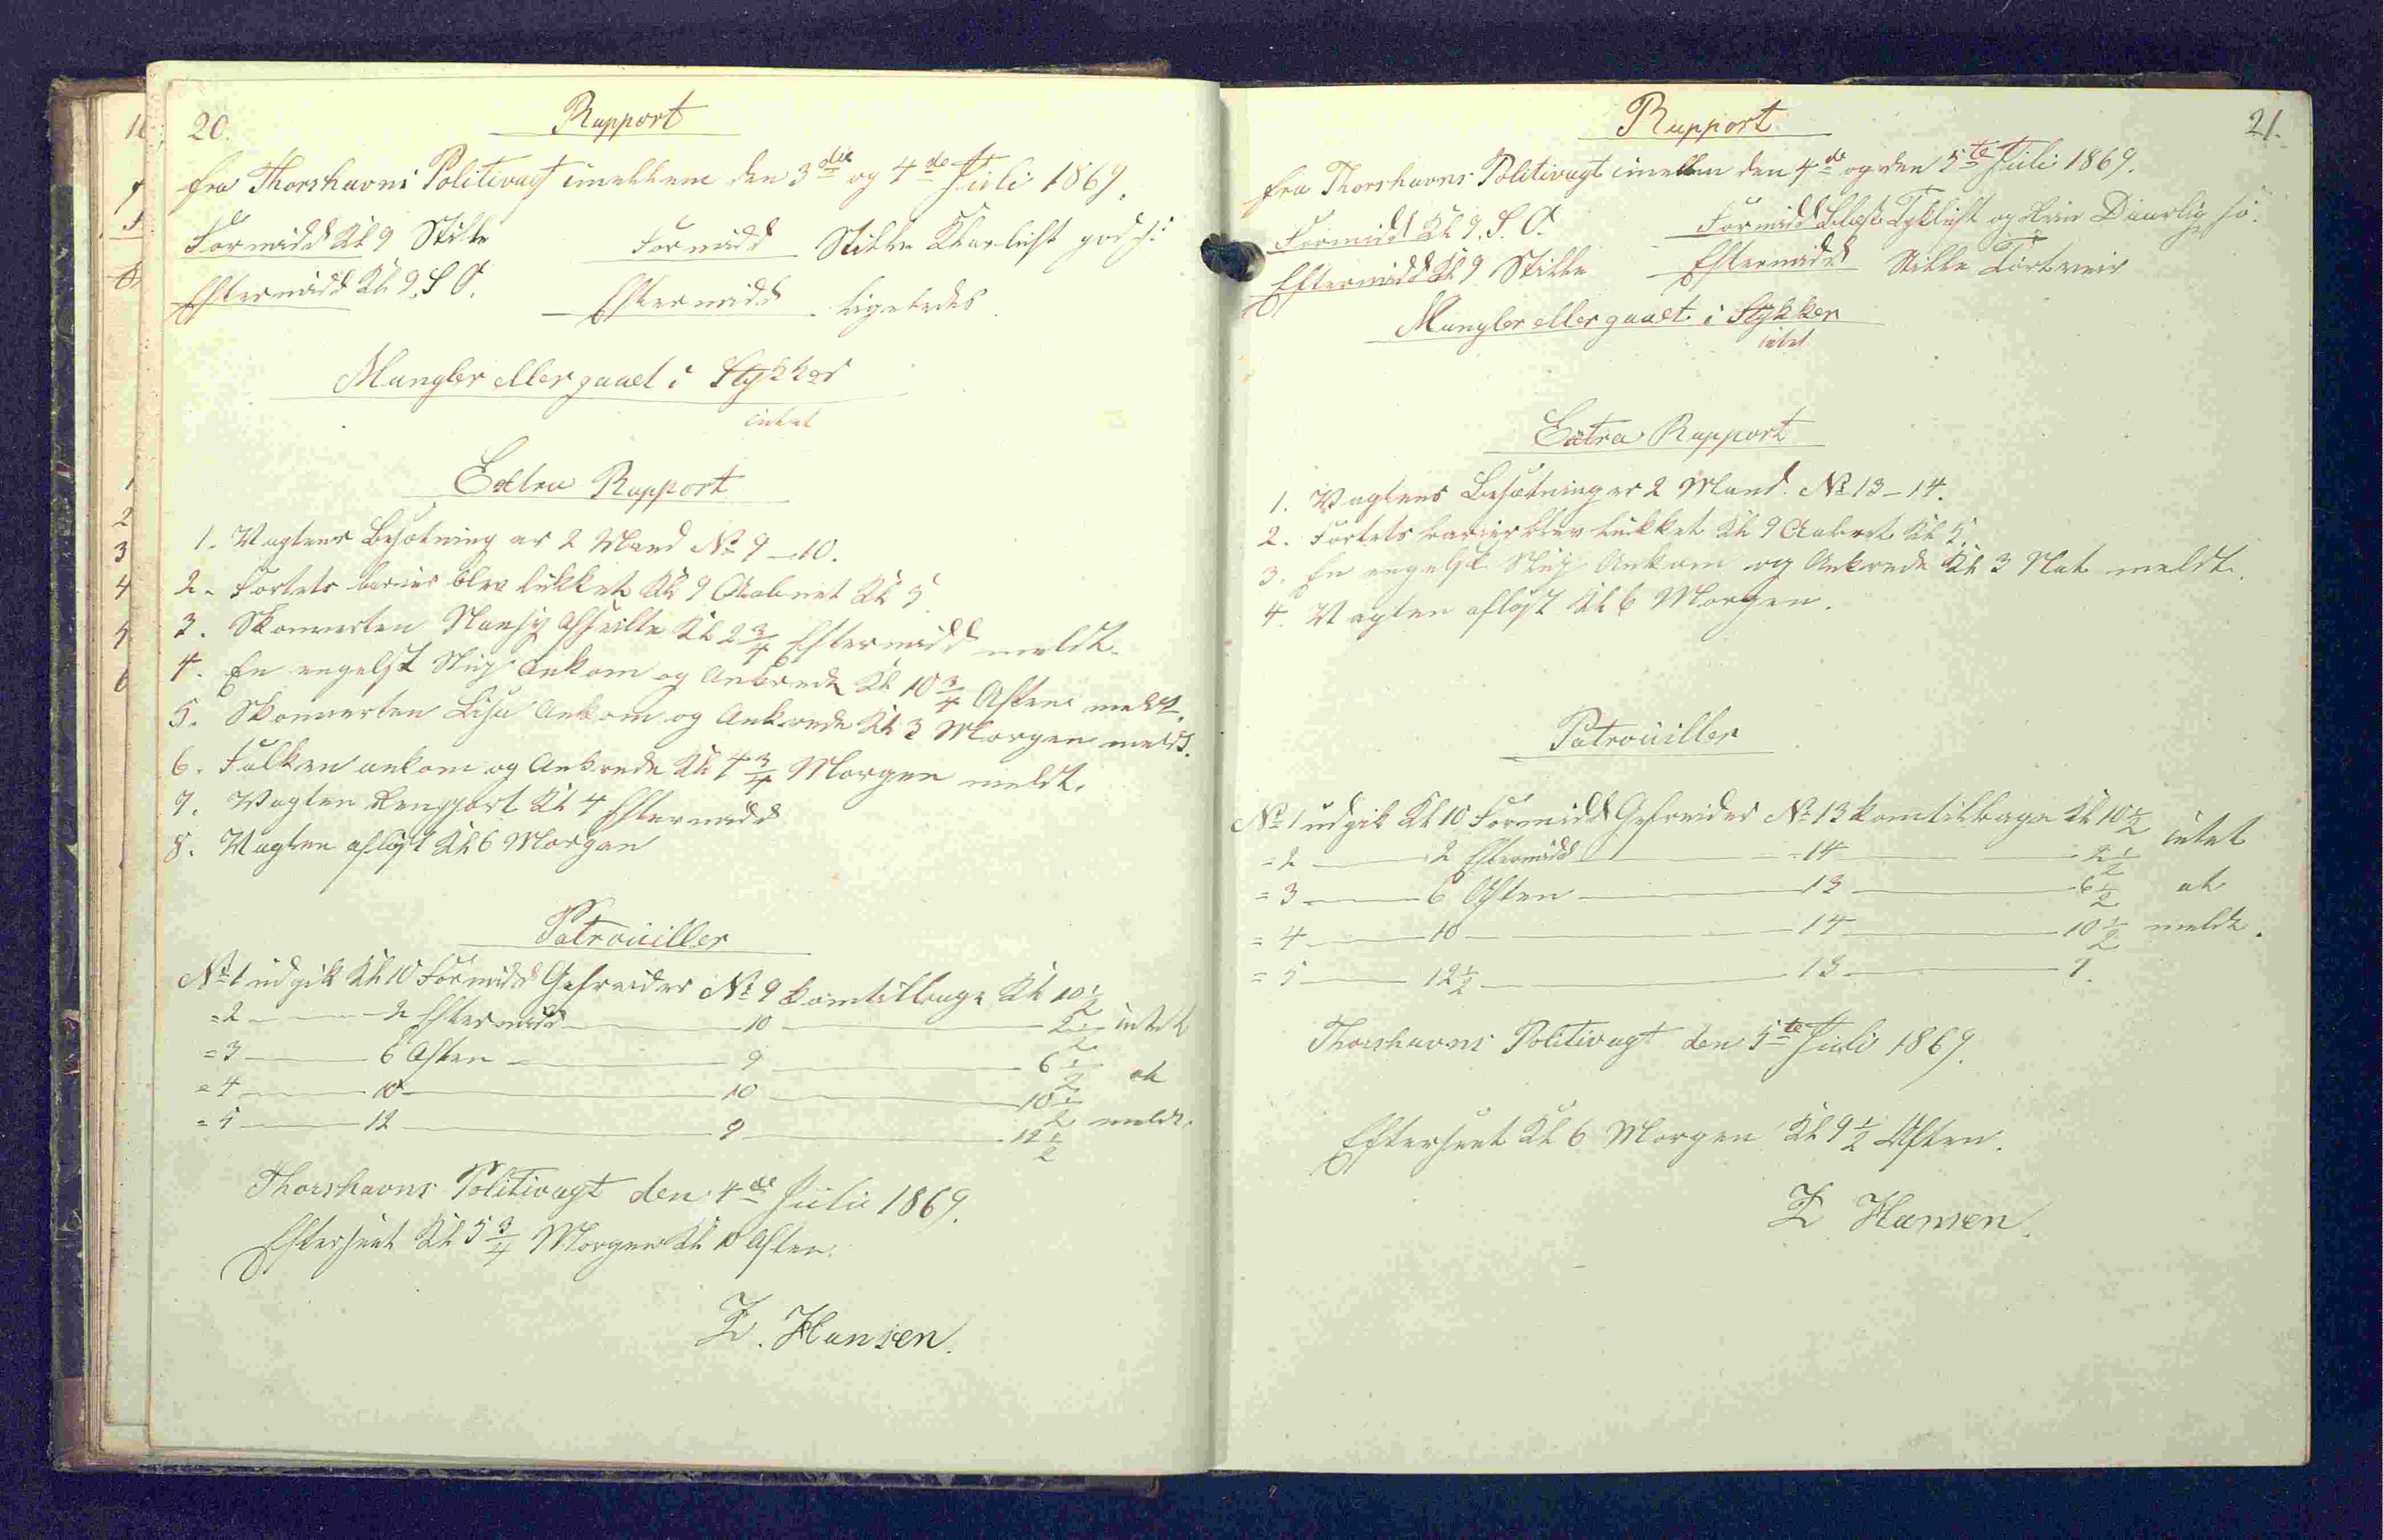 20.
Rapport
fra Thorshavns Politivagt imellem den 3die og 4de Juli 1869.
Formidd Kl 9 Stille Formidd Stille Klarluft god
Eftermidd Kl 9. S O. Eftermidd ligeledes
Mangler eller gaaet i Stykker
intet
Extra Rapport
1. Vagtens Besætning er 2 Mand No 9 - 10.
2. Fortets barier blev lukket Kl 9 Aabnet Kl 5
3. Skonnerten Afseilte Kl 2 3/4 Eftermidd meldt.
4. En engelsk Slup Ankom og Ankrede Kl 10 3/4 Aften meldt.
5. Skonnerten Ankom og Ankrede Kl 3 Morgen meldt.
6. Falken ankom og Ankrede Kl 4 3/4 Morgen meldt.
7. Vagten Rengjort Kl 4 Eftermidd
8. Vagten afløst Kl 6 Morgen
Patrouiller
No 1 udgik Kl 10 Formidd Gefreider No 9 kom tilbage Kl 10 1/2
= 2 2 Eftermidd 10 2 1/2 intet
= 3 6 Aften 9 6 1/2 at
= 4 10 10 10 1/2
= 5 12 9 12 1/2 meldt.
Thorshavns Politivagt den 4de Juli 1869.
Efterseet Kl 5 3/4 Morgen Kl 10 Aften.
Z. Hansen.
21.
Rapport
fra Thorshavns Politivagt imellem den 4de og den 5te Juli 1869.
Formidd Kl 9. S. O. Formidd Blæst Tykluft og Rein Daarlig sø.
Eftermidd Kl 9 Stille Eftermidd Stille Tørt veir
Mangler eller gaaet i Stykker
intet
Extra Rapport
1. Vagtens Besætning er 2 Mand. No 13 - 14.
2. Fortets barier blev lukket Kl 9 Aabnet Kl 5.
3. En engelsk Slup Ankom og Ankrede Kl 3 Nat meldt.
4. Vagten afløst Kl 6 Morgen.
Patrouiller
No 1 udgik Kl 10 Formidd Gefreider No 13 kom tilbage Kl 10 1/2 intet
= 2 2 Eftermidd 14 2 1/2
= 3 6 Aften 13 6 1/2 at
= 4 10 14 10 1/2 meldt.
= 5 12 1/2 13 1.
Thorshavns Politivagt den 5te Juli 1869.
Efterseet Kl 6 Morgen Kl 9 1/2 Aften.
Z Hansen.